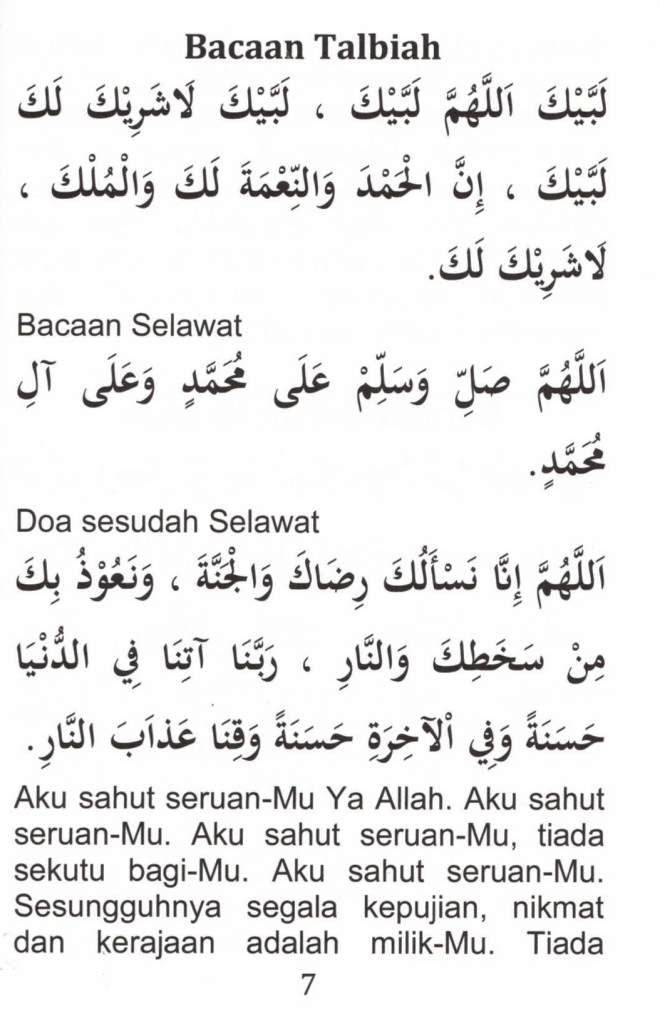 Bacaan Talbiah
لَبَّيْكَ اَللَّهُمَّ لَبَّيْكَ ، لَبَّيْكَ لَاشَرِيْكَ لَكَ
لَبَّيْكَ ، إِنَّ الْحَمْدَ وَالنِّعْمَةَ لَكَ وَالْمُلْكَ ،
لَاشَرِيْكَ لَكَ.
Bacaan Selawat
اَللَّهُمَّ صَلِّ وَسَلِّمْ عَلَى مُحَمَّدٍ وَعَلَى آلِ
مُحَمَّدٍ.
Doa sesudah Selawat
اَللَّهُمَّ إِنَّا نَسْأَلُكَ رِضَاكَ وَالْجَنَّةَ ، وَنَعُوْذُ بِكَ
مِنْ سَخَطِكَ وَالنَّارِ ، رَبَّنَا آتِنَا فِي الدُّنْيَا
حَسَنَةً وَفِي اْلآخِرَةِ حَسَنَةً وَقِنَا عَذَابَ النَّارِ.
Aku sahut seruan-Mu Ya Allah. Aku sahut
seruan-Mu. Aku sahut seruan-Mu, tiada
sekutu bagi-Mu. Aku sahut seruan-Mu.
Sesungguhnya segala kepujian, nikmat
dan kerajaan adalah milik-Mu. Tiada
7